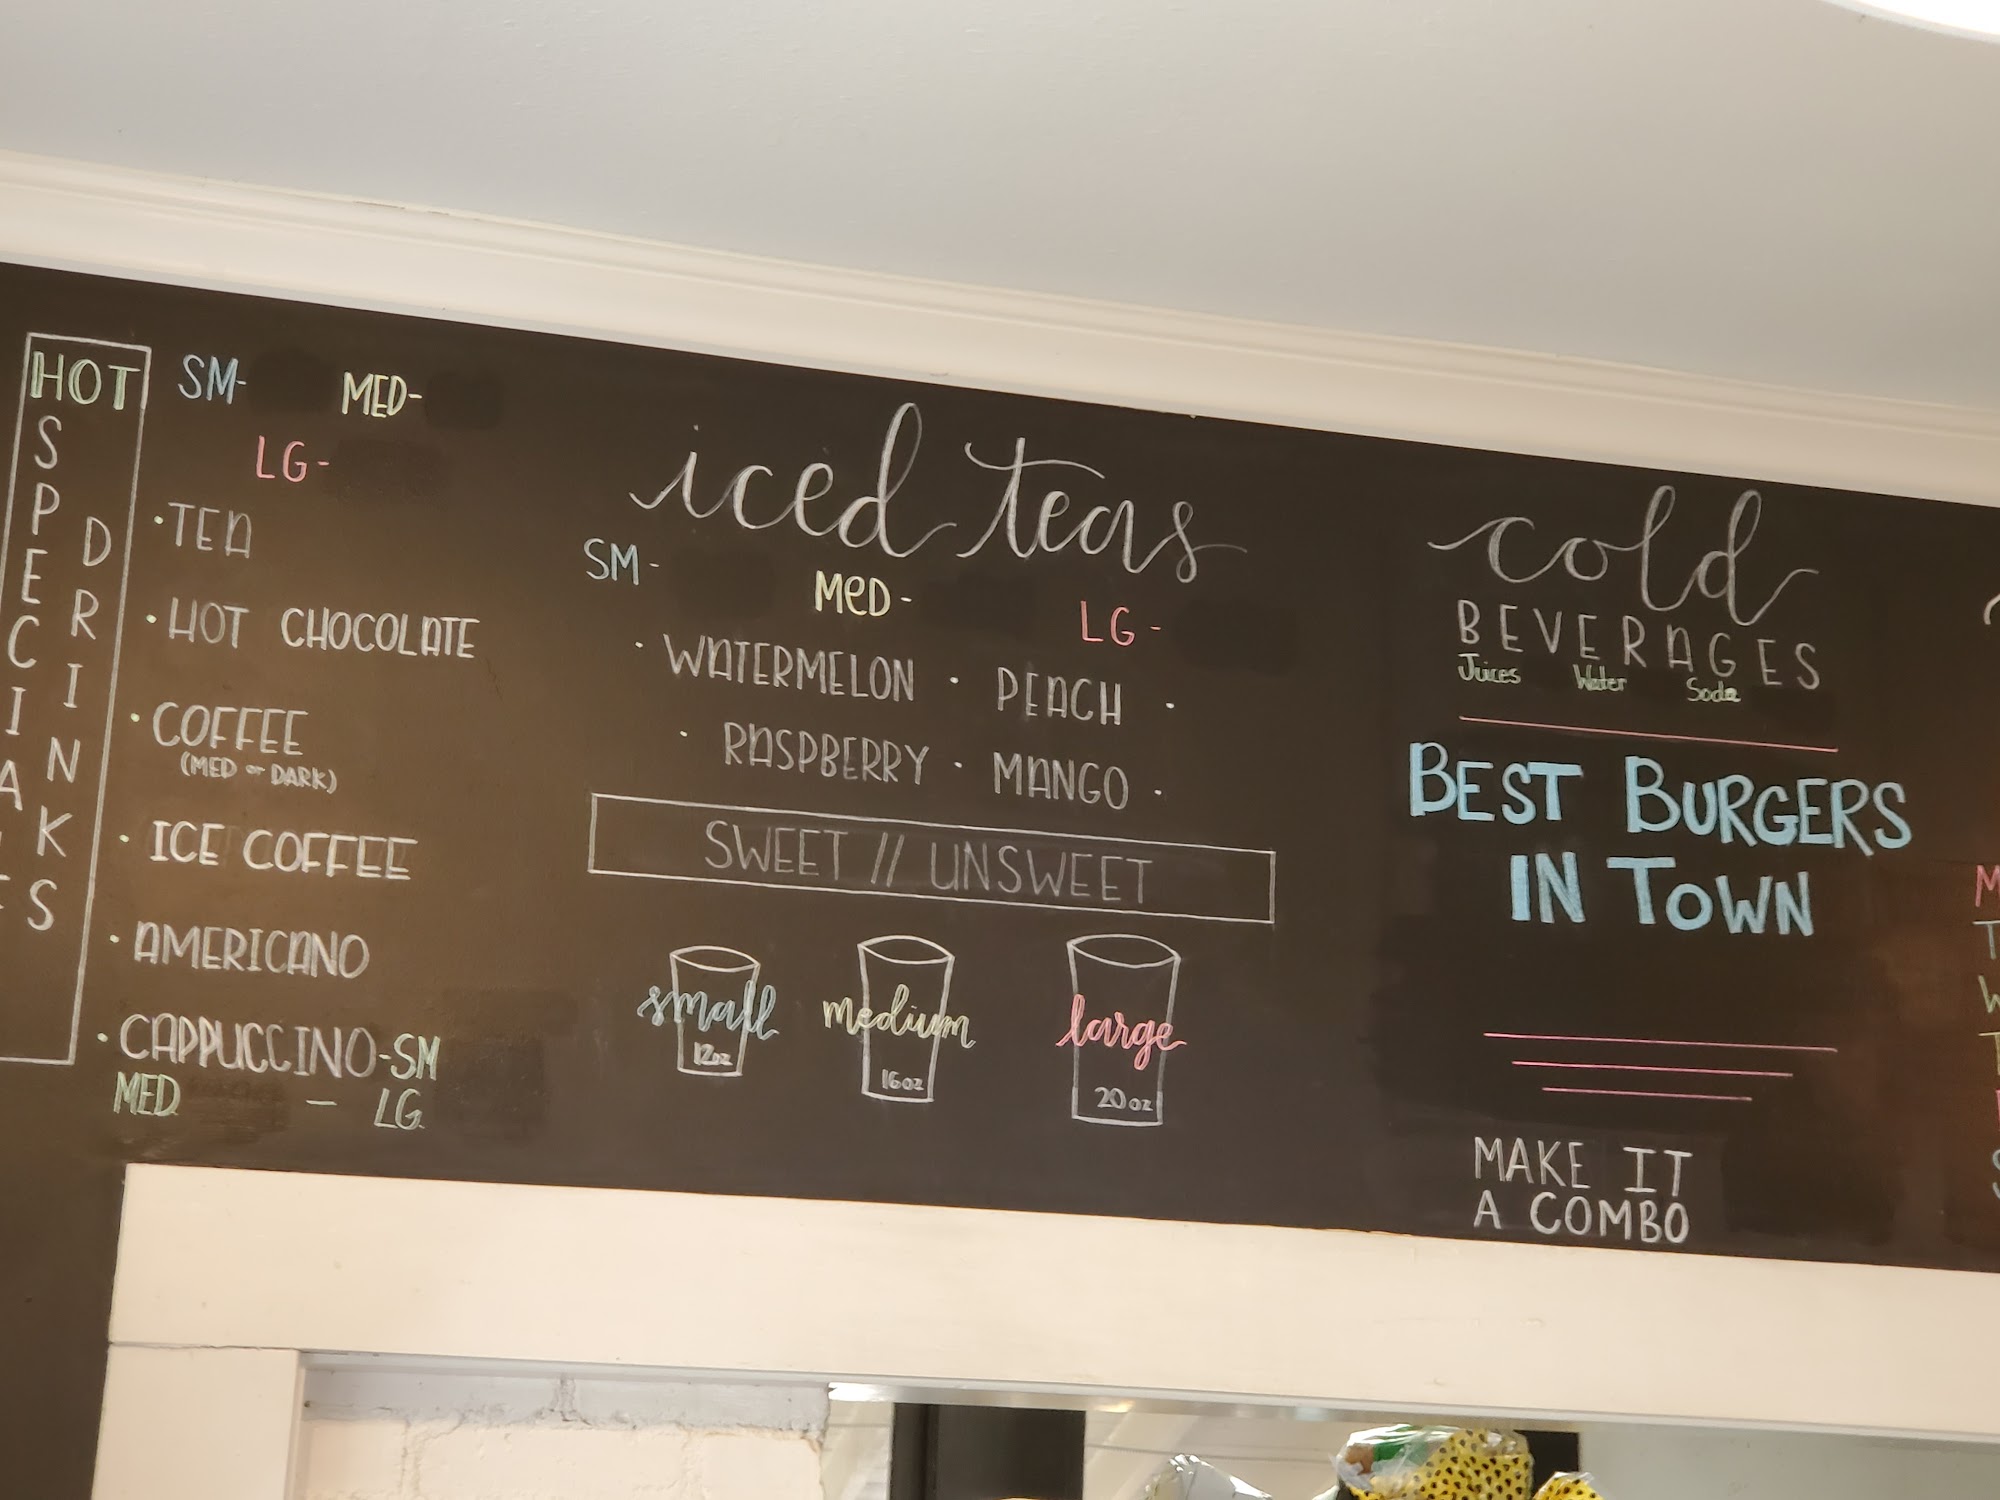 HOT
SPECIA
DRINKS
SM- MED-
LG-
·TEA
·HOT CHOCOLATE
·COFFEE
(MED or DARK)
·ICE COFFEE
·AMERICANO
·CAPPUCCINO-SM
MED — LG
iced teas
SM- MED- LG-
·WATERMELON · PEACH ·
·RASPBERRY · MANGO ·
SWEET // UNSWEET
small medium large
12oz 16oz 20oz
cold
BEVERAGES
Juices Water Soda
BEST BURGERS
IN TOWN
MAKE IT
A COMBO